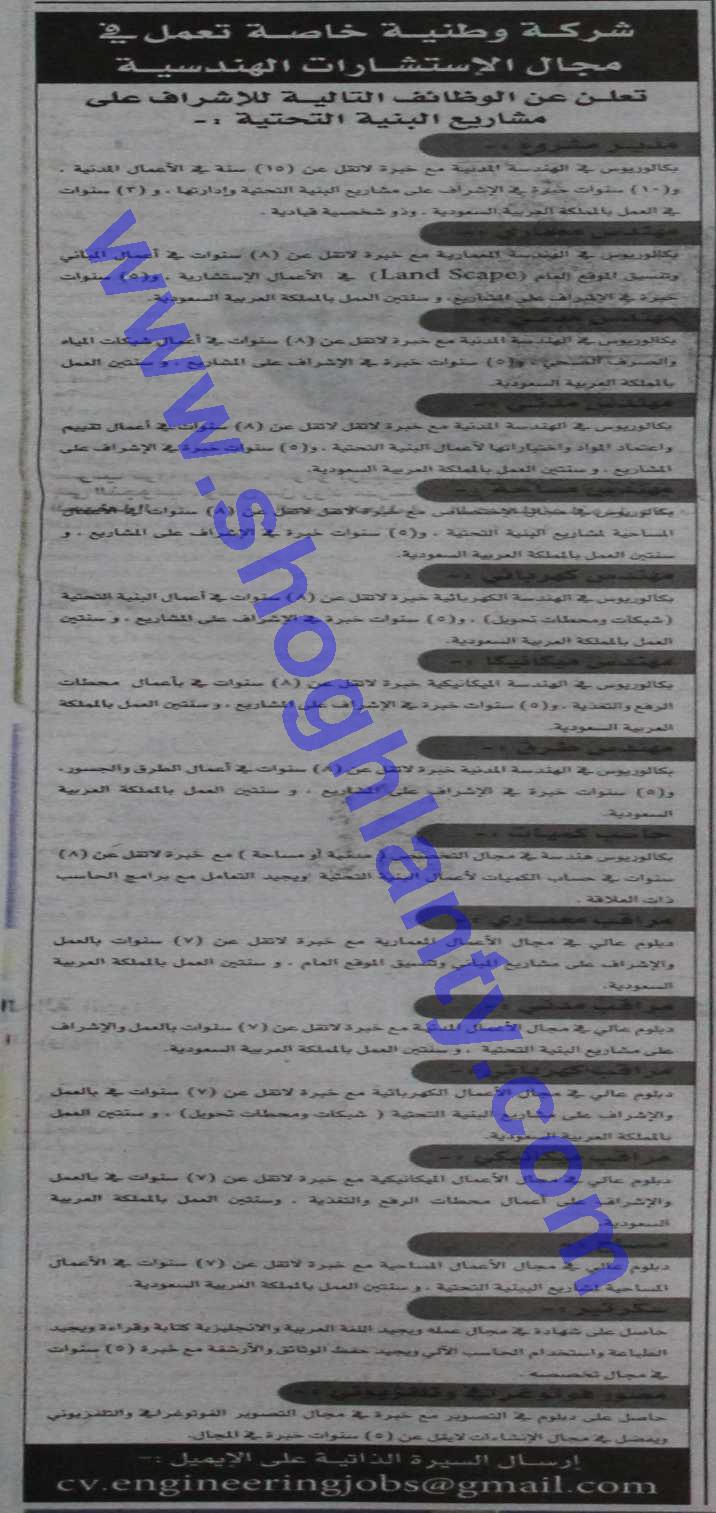 شركة وطنية خاصة تعمل في
مجال الإستشارات الهندسية
تعلن عن الوظائف التالية للإشراف على
مشاريع البنية التحتية :-
مدير مشروع :-
بكالوريوس في الهندسة المدنية مع خبرة لاتقل عن (١٥) سنة في الأعمال المدنية ،
و(١٠) سنوات خبرة في الإشراف على مشاريع البنية التحتية وإدارتها ، و (٣) سنوات
في العمل بالمملكة العربية السعودية ، وذو شخصية قيادية .
مهندس معماري :-
بكالوريوس في الهندسة المعمارية مع خبرة لاتقل عن (٨) سنوات في أعمال المباني
وتنسيق الموقع العام (Land Scape) في الأعمال الإستشارية ، و(٥) سنوات
خبرة في الإشراف على المشاريع، و سنتين العمل بالمملكة العربية السعودية.
مهندس مدني :-
بكالوريوس في الهندسة المدنية مع خبرة لاتقل عن (٨) سنوات في أعمال شبكات المياه
والصرف الصحي ، و(٥) سنوات خبرة في الإشراف على المشاريع ، و سنتين العمل
بالمملكة العربية السعودية.
مهندس مدني :-
بكالوريوس في الهندسة المدنية مع خبرة لاتقل لاتقل عن (٨) سنوات في أعمال تقييم
واعتماد المواد واختباراتها لأعمال البنية التحتية ، و(٥) سنوات خبرة في الإشراف على
المشاريع ، و سنتين العمل بالمملكة العربية السعودية.
مهندس مساحة :-
بكالوريوس في مجال الإختصاص مع خبرة لاتقل لاتقل عن (٨) سنوات في الأعمال
المساحية لمشاريع البنية التحتية ، و(٥) سنوات خبرة في الإشراف على المشاريع ، و
سنتين العمل بالمملكة العربية السعودية.
مهندس كهربائي :-
بكالوريوس في الهندسة الكهربائية خبرة لاتقل عن (٨) سنوات في أعمال البنية التحتية
(شبكات ومحطات تحويل) ، و(٥) سنوات خبرة في الإشراف على المشاريع ، و سنتين
العمل بالمملكة العربية السعودية.
مهندس ميكانيكا :-
بكالوريوس في الهندسة الميكانيكية خبرة لاتقل عن (٨) سنوات في بأعمال محطات
الرفع والتغذية ، و(٥) سنوات خبرة في الإشراف على المشاريع ، و سنتين العمل بالمملكة
العربية السعودية.
مهندس طرق :-
بكالوريوس في الهندسة المدنية خبرة لاتقل عن (٨) سنوات في أعمال الطرق والجسور،
و(٥) سنوات خبرة في الإشراف على المشاريع ، و سنتين العمل بالمملكة العربية
السعودية.
حاسب كميات :-
بكالوريوس هندسة في مجال التخصص (مدنية أو مساحة) مع خبرة لاتقل عن (٨)
سنوات في حساب الكميات لأعمال البنية التحتية ويجيد التعامل مع برامج الحاسب
ذات العلاقة .
مراقب معماري :-
دبلوم عالي في مجال الأعمال المعمارية مع خبرة لاتقل عن (٧) سنوات بالعمل
والإشراف على مشاريع المباني وتنسيق الموقع العام ، و سنتين العمل بالمملكة العربية
السعودية.
مراقب مدني :-
دبلوم عالي في مجال الأعمال المدنية مع خبرة لاتقل عن (٧) سنوات بالعمل والإشراف
على مشاريع البنية التحتية ، و سنتين العمل بالمملكة العربية السعودية.
مراقب كهربائي :-
دبلوم عالي في مجال الأعمال الكهربائية مع خبرة لاتقل عن (٧) سنوات في بالعمل
والإشراف على مشاريع البنية التحتية ( شبكات ومحطات تحويل) ، و سنتين العمل
بالمملكة العربية السعودية.
مراقب ميكانيكي :-
دبلوم عالي في مجال الأعمال الميكانيكية مع خبرة لاتقل عن (٧) سنوات في بالعمل
والإشراف على أعمال محطات الرفع والتغذية ، وسنتين العمل بالمملكة العربية
السعودية.
دبلوم عالي في مجال الأعمال المساحية مع خبرة لاتقل عن (٧) سنوات في الأعمال
المساحية لمشاريع البينية التحتية ، و سنتين العمل بالمملكة العربية السعودية.
سكرتير :-
حاصل على شهادة في مجال عمله ويجيد اللغة العربية والانجليزية كتابة وقراءة ويجيد
الطباعة واستخدام الحاسب الآلي ويجيد حفظ الوثائق والأرشفة مع خبرة (٥) سنوات
في مجال تخصصه .
مصور فوتوغرافي وتلفزيوني :-
حاصل على دبلوم في التصوير مع خبرة في مجال التصوير الفوتوغرافي والتلفزيوني
ويفضل في مجال الإنشاءات لايقل عن (٥) سنوات خبرة في المجال.
إرسال السيرة الذاتية على الإيميل :-
cv.engineeringjobs@gmail.com
www.shoghlanty.com